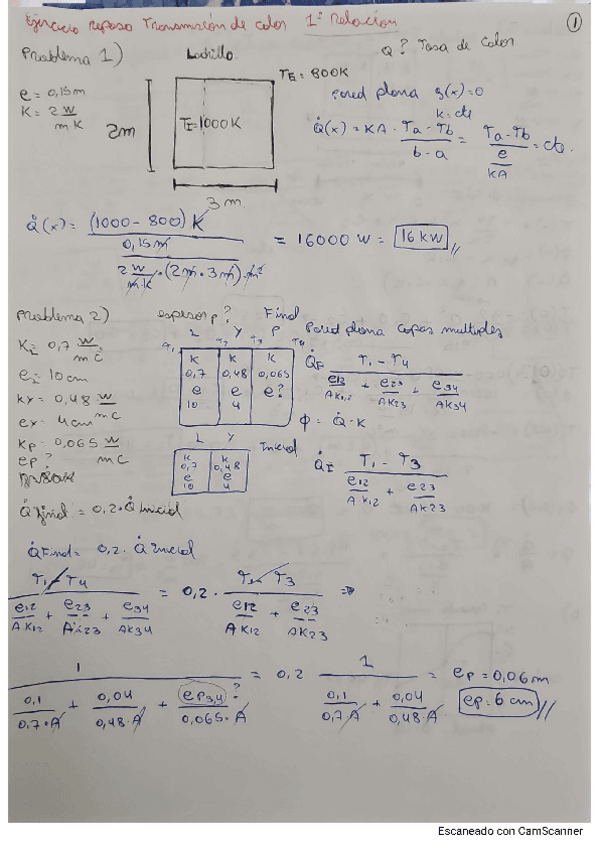 Ejercicio repaso Transmisión de calor 1ª Relación
1
Problema 1)
Ladrillo
Q? Tasa de calor
e = 0,15m
K = 2 W/mK
2m
TI = 1000K
TE = 800K
3 m.
Pared plana g(x)=0
k: cte
Q̇(x) = KA · (Ta - Tb)/(b - a) = (Ta - Tb)/(e/KA) = cte.
Q̇(x) = (1000 - 800) K / (0,15 m / (2 W/m·K · (2m · 3m) m²)) = 16000 W = 16 KW //
Problema 2)
espesor p?
Final
Pared plana capas multiples
KL = 0,7 W/mC
eL = 10cm
ky = 0,48 W
mC
ex = 4cm
Kp = 0,065 W
mC
ep?
L Y P
T1 T2 T3 T4
K K K
0,7 0,48 0,065
e e e?
10 4
Q̇F = (T1 - T4) / (e12/AK12 + e23/AK23 + e34/AK34)
Φ = Q̇ · K
L Y
Inicial
K K
0,7 0,48
e e
10 4
Q̇I = (T1 - T3) / (e12/AK12 + e23/AK23)
Q̇final = 0,2 · Q̇inicial
Q̇Final = 0,2 · Q̇Inicial
(T1 - T4) / (e12/AK12 + e23/AK23 + e34/AK34) = 0,2 · (T1 - T3) / (e12/AK12 + e23/AK23) ⇒
1 / (0,1/0,7·A + 0,04/0,48·A + ep3,4?/0,065·A) = 0,2 1 / (0,1/0,7·A + 0,04/0,48·A) = ep = 0,06m
ep = 6cm //
Escaneado con CamScanner